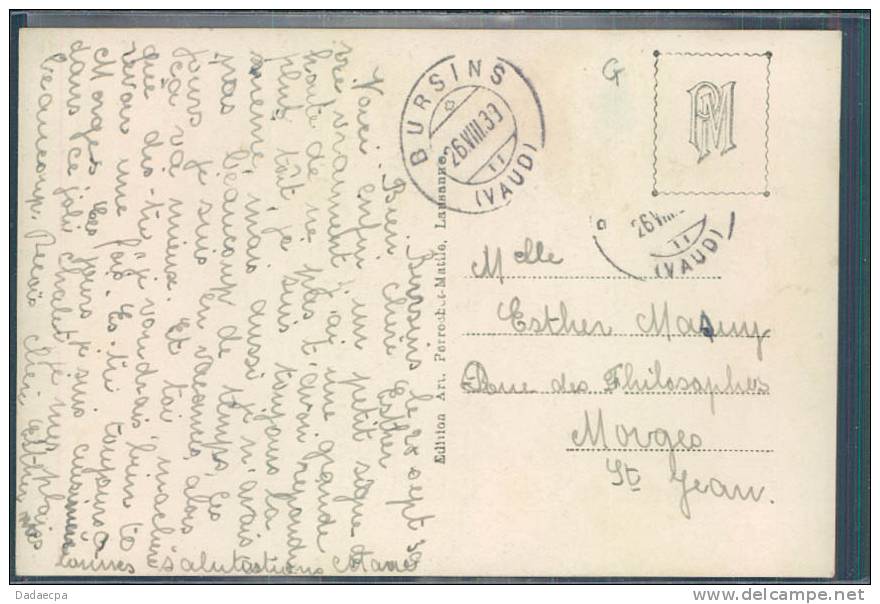 Bursins le 20 sept 39
Bien chère Esther
Voici enfin un petit signe de
vie vraiment j'ai une grande
honte de ne pas t'avoir répondu
plus tôt je suis toujours la
même, mais aussi je n'avais
pas beaucoup de temps, les
jours je suis en vacances, alors
ça va mieux. Et toi
que dis-tu, je voudrais bien te
revoir une fois. Es-tu toujours à
Morges. Ces jours je suis
dans ce joli chalet je me plais
beaucoup. Reçois chère Esther mes
bonnes salutations
Edition Art. Perrochet-Matile, Lausanne
BURSINS
26.VIII.39
(VAUD)
G
PM
26.VIII.
(VAUD)
Melle
Esther
Rue des Philosophes
Morges
St Jean.
Dadaecpa
www.delcampe.net